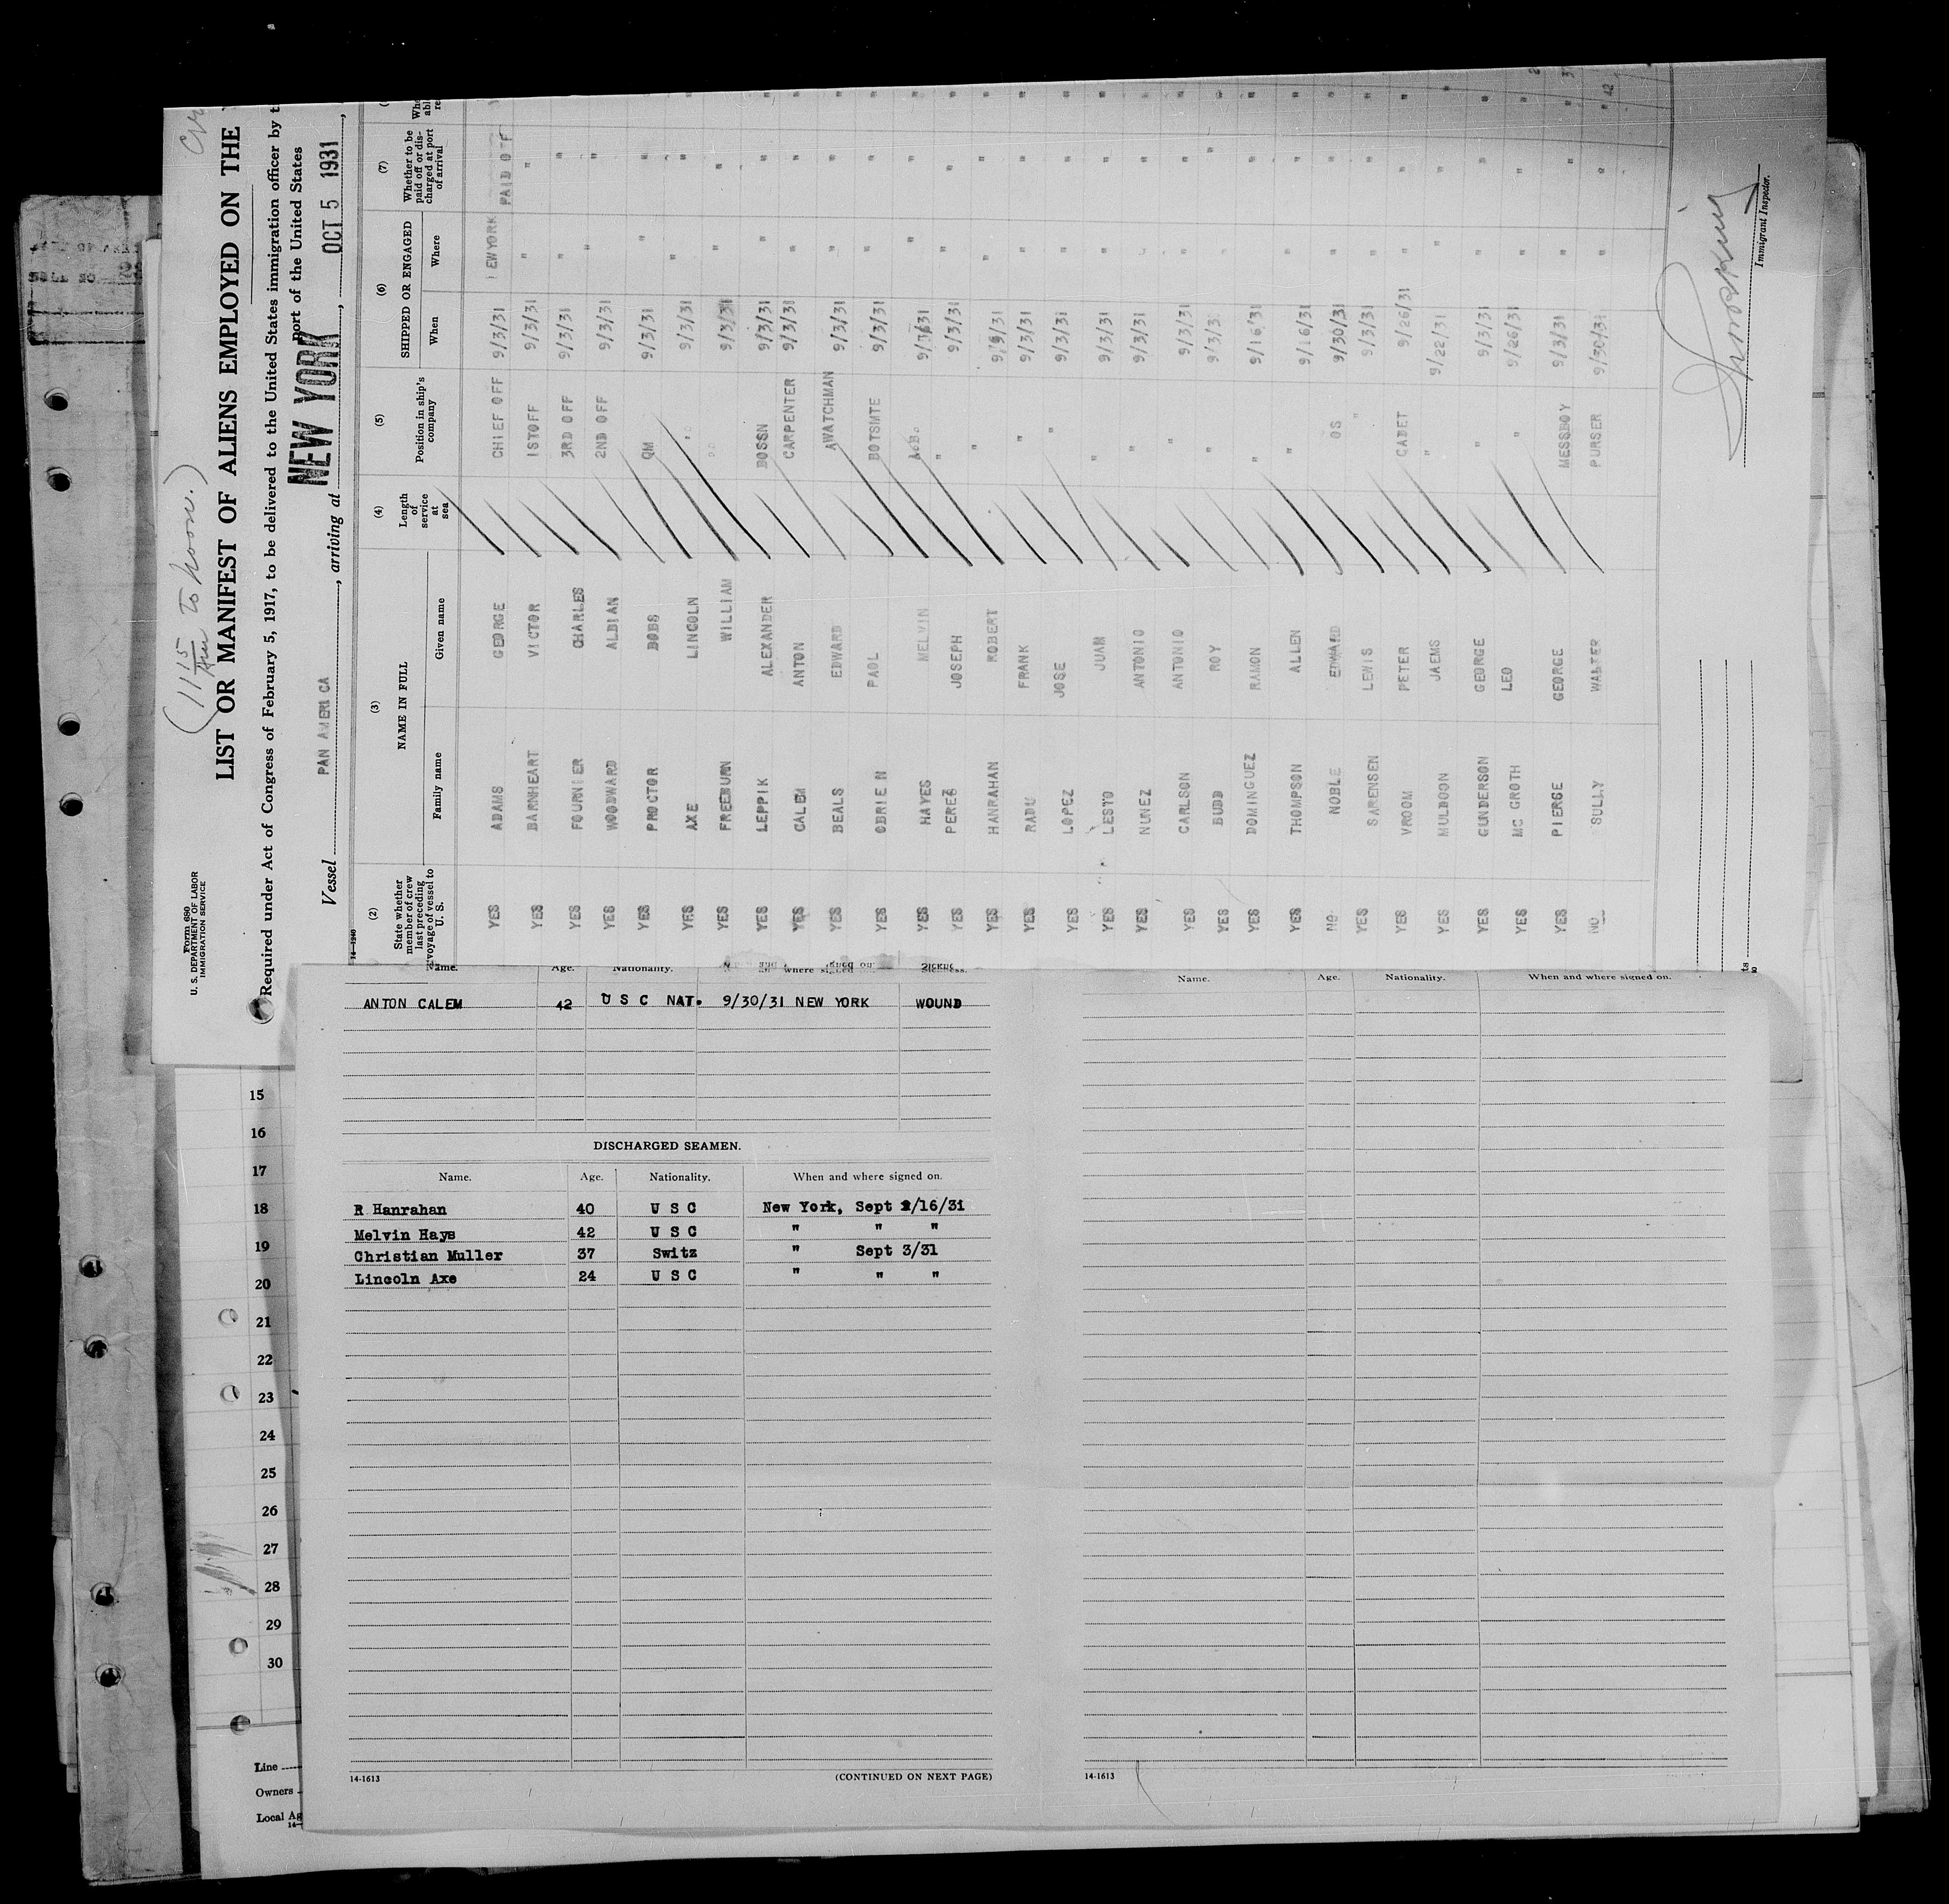 (11 15 am to noon.)
Form 680
U. S. DEPARTMENT OF LABOR
IMMIGRATION SERVICE
LIST OR MANIFEST OF ALIENS EMPLOYED ON THE
Required under Act of Congress of February 5, 1917, to be delivered to the United States immigration officer by t
port of the United States
Vessel PAN AMERICA, arriving at NEW YORK, OCT 5 1931,
14-1240
(2) (3) (4) (5) (6) (7)
State whether member of crew last preceding voyage of vessel to U. S.
NAME IN FULL
Family name Given name
Length of service at sea
Position in ship's company
SHIPPED OR ENGAGED
When Where
Whether to be paid off or discharged at port of arrival
YES ADAMS GEORGE CHIEF OFF 9/3/31 EWYORK PAID OFF
YES BARNHEART VICTOR 1STOFF 9/3/31 " "
YES FOURNIER CHARLES 3RD OFF 9/3/31 " "
YES WOODWARD ALBIAN 2ND OFF 9/3/31 " "
YES PROCTOR BOBS QM 9/3/31 " "
YES AXE LINCOLN 9/3/31 " "
YES FREEBURN WILLIAM 9/3/31 " "
YES LEPPIK ALEXANDER BOSSN 9/3/31 " "
YES CALEM ANTON CARPENTER 9/3/31 " "
YES BEALS EDWARD AWATCHMAN 9/3/31 " "
YES OBRIEN PAOL BOTSMTE 9/3/31 " "
YES HAYES MELVIN " "
YES PEREZ JOSEPH " 9/3/31 " "
YES HANRAHAN ROBERT " " "
YES RADU FRANK " 9/3/31 " "
YES LOPEZ JOSE " 9/3/31 " "
YES LESTO JUAN " 9/3/31 " "
YES NUNEZ ANTONIO " 9/3/31 " "
YES CARLSON ANTONIO " 9/3/31 " "
YES BUDD ROY " 9/3/3 " "
YES DOMINGUEZ RAMON " 9/16/31 " "
YES THOMPSON ALLEN " 9/16/31 " "
NO NOBLE EDWARD OS 9/30/31 " "
YES SARENSEN LEWIS " 9/3/31 " "
YES VROOM PETER CADET 9/26/31 " "
YES MULDOON JAEMS " 9/22/31 " "
YES GUNDERSON GEORGE " 9/3/31 " "
YES MC GROTH LEO " 9/26/31 " "
YES PIERGE GEORGE MESSBOY 9/3/31 " "
NO SULLY WALTER PURSER 9/30/31 " "
Immigrant Inspector.
Age. Nationality.
ANTON CALEM 42 U S C NAT. 9/30/31 NEW YORK WOUND
DISCHARGED SEAMEN.
Name. Age. Nationality. When and where signed on.
R Hanrahan 40 U S C New York, Sept /16/31
Melvin Hays 42 U S C " " "
Christian Muller 37 Switz " Sept 3/31
Lincoln Axe 24 U S C " " "
14-1613 (CONTINUED ON NEXT PAGE)
Name. Age. Nationality. When and where signed on.
14-1613
15
16
17
18
19
20
21
22
23
24
25
26
27
28
29
30
Line
Owners
Local Ag
14-